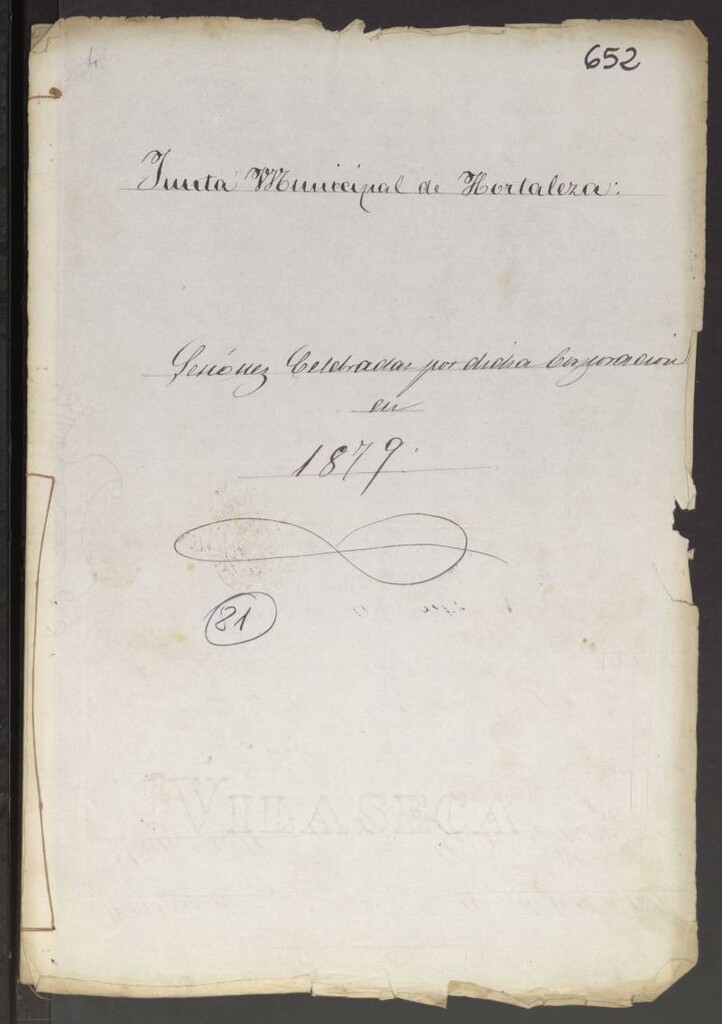 652
Junta Municipal de Hortaleza:
Sesiónes Celebradas por dicha Corporacion
en
1879.
81
VILASECA